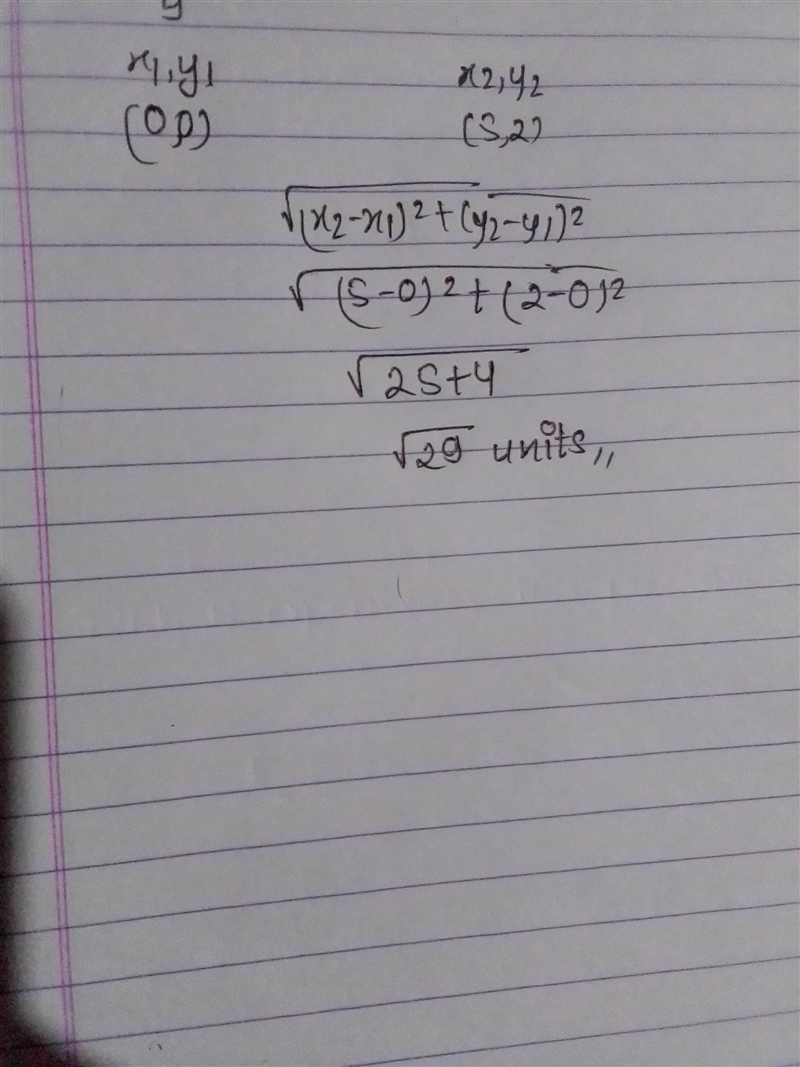 x1,y1 x2,y2
(0,0) (5,2)
√(x2-x1)²+(y2-y1)²
√(5-0)²+(2-0)²
√25+4
√29 units,,